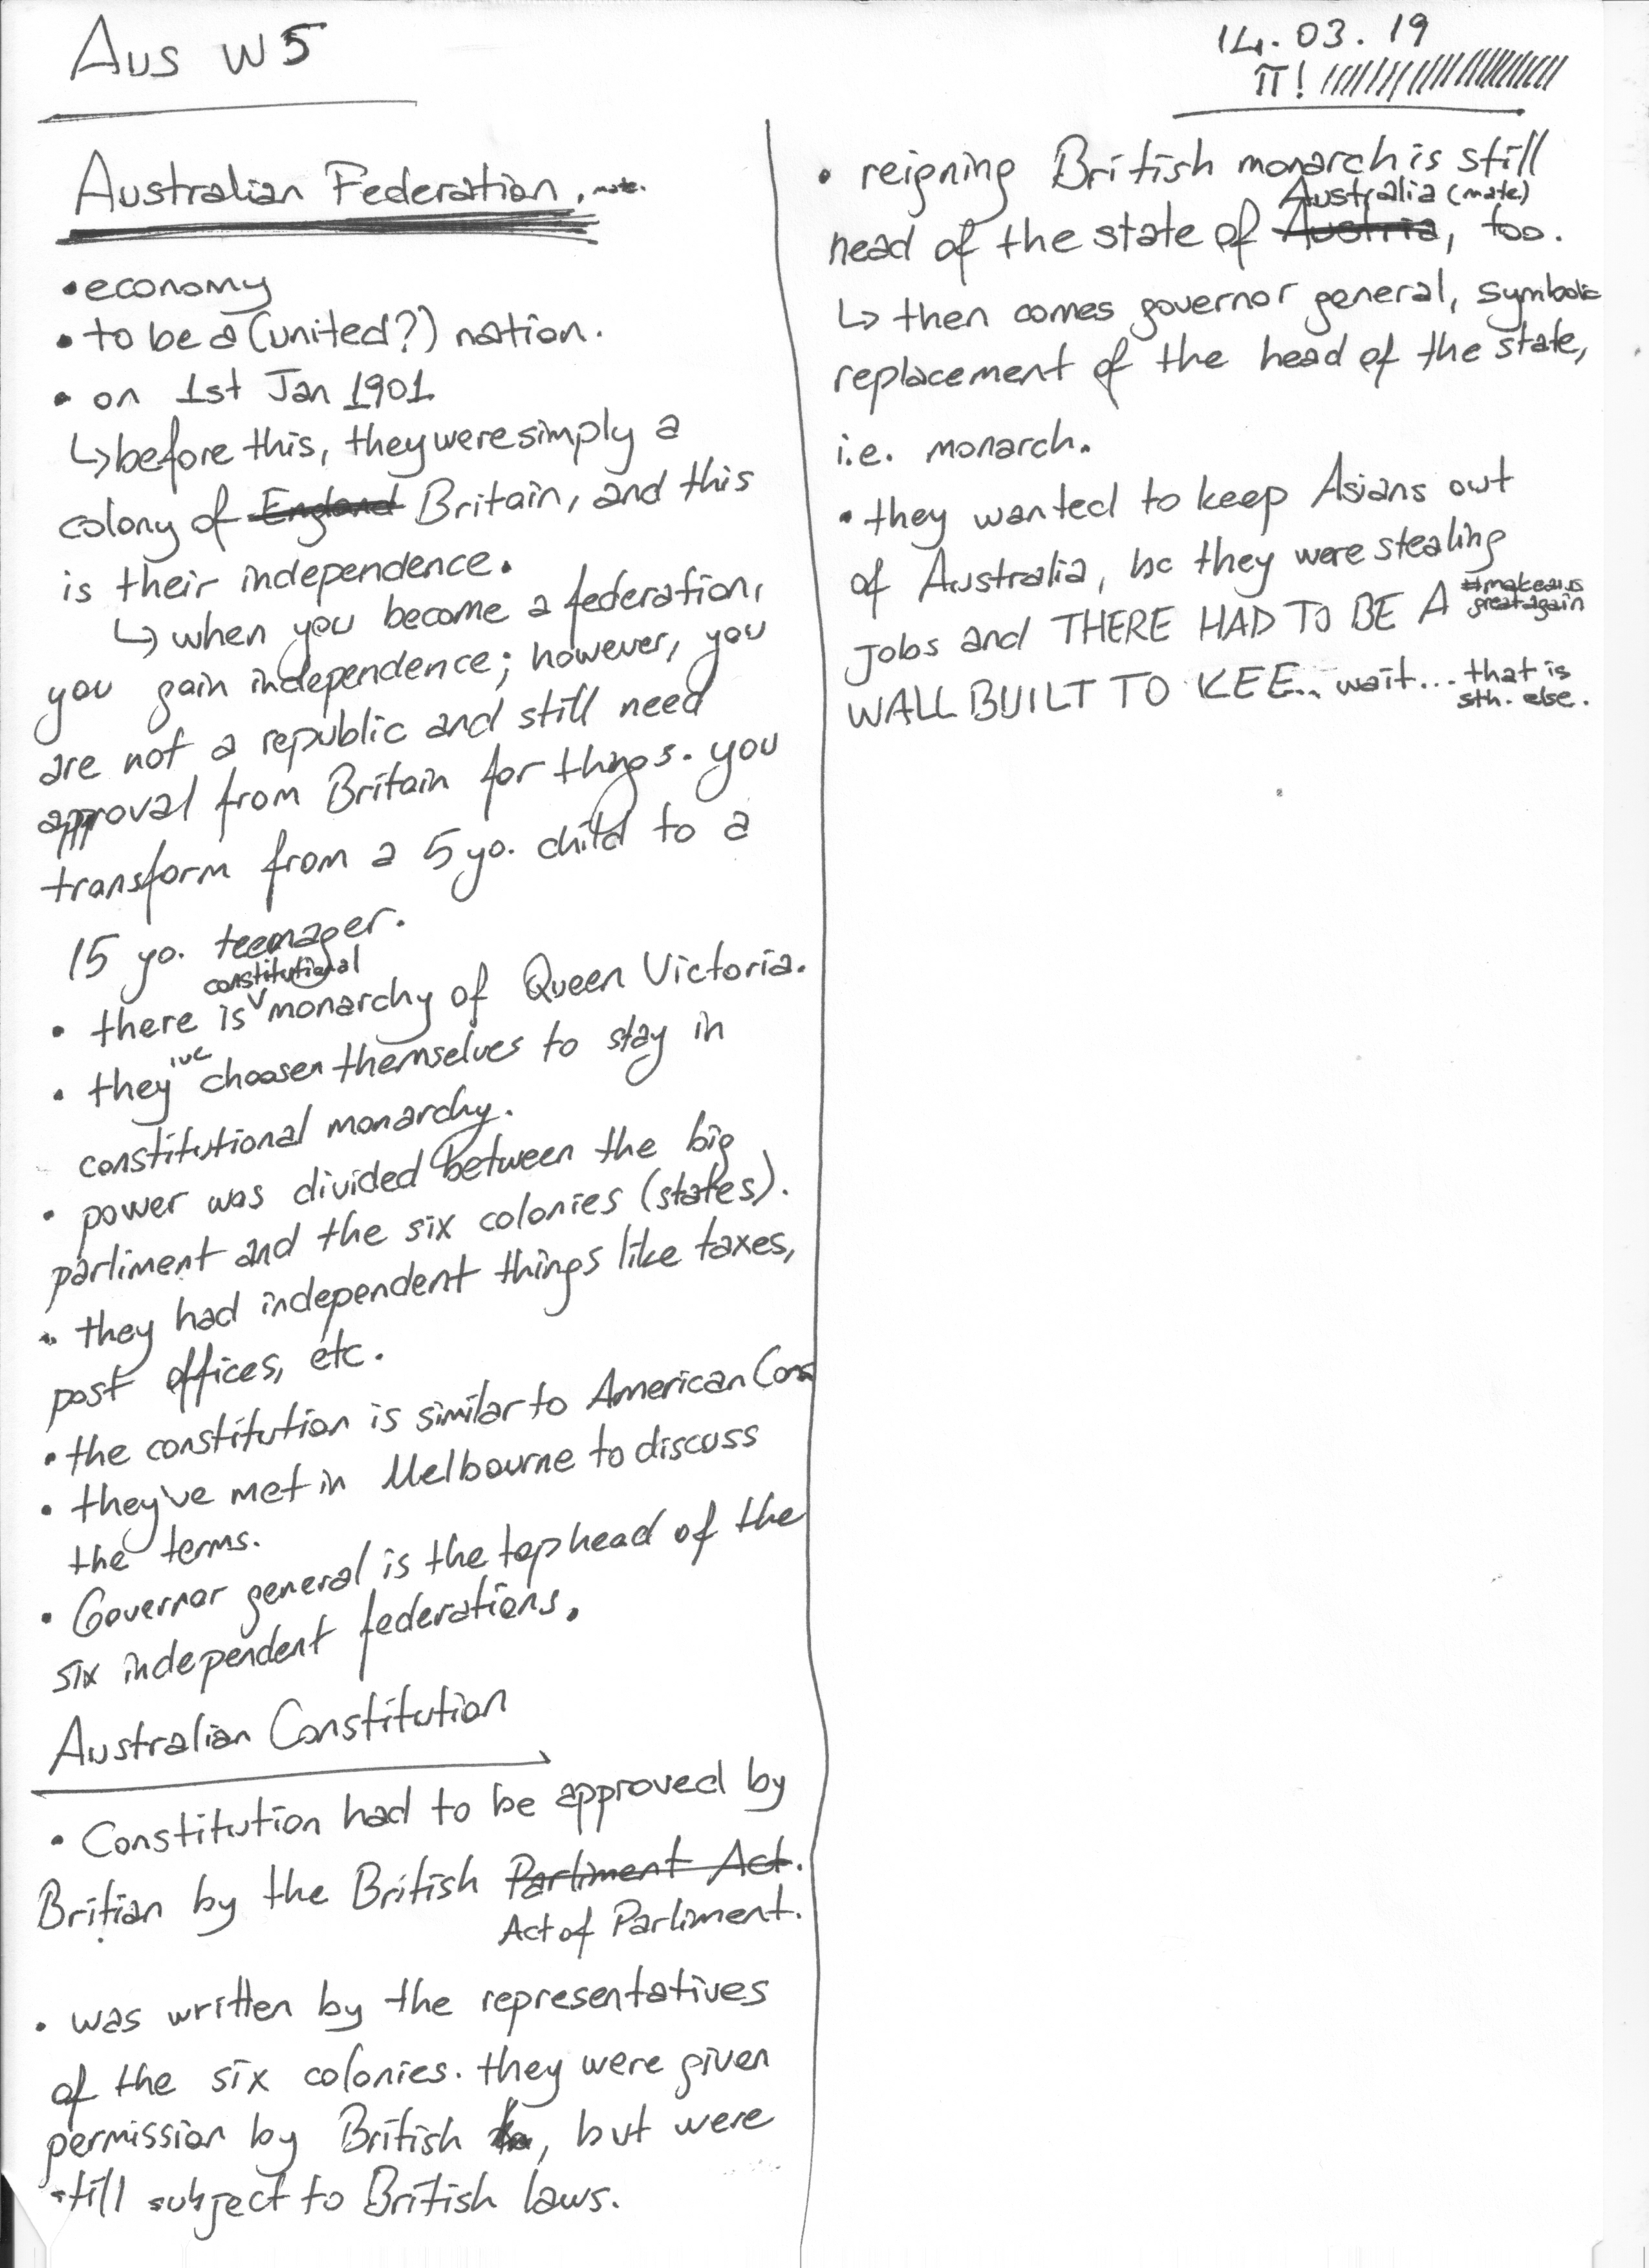 Aus W5
14.03.19
π!
Australian Federation, mate.
• economy
• to be a (united?) nation.
• on 1st Jan 1901
↳ before this, they were simply a
colony of England Britain, and this
is their independence.
↳ when you become a federation,
you gain independence; however, you
are not a republic and still need
approval from Britain for things. you
transform from a 5 yo. child to a
15 yo. teenager.
constitutional
• there is monarchy of Queen Victoria.
• they've choosen themselves to stay in
constitutional monarchy.
• power was divided between the big
parliment and the six colonies (states).
• they had independent things like taxes,
post offices, etc.
• the constitution is similar to American Cons
• they've met in Melbourne to discuss
the terms.
• Governor general is the top head of the
six independent federations.
Australian Constitution
• Constitution had to be approved by
Britian by the British Parliment Act.
Act of Parliment.
• was written by the representatives
of the six colonies. they were given
permission by British, but were
still subject to British laws.
• reigning British monarch is still
Australia (mate.)
head of the state of Austria, too.
↳ then comes governor general, symbolic
replacement of the head of the state,
i.e. monarch.
• they wanted to keep Asians out
of Australia, bc they were stealing
jobs and THERE HAD TO BE A #makeaus
greatagain
WALL BUILT TO KEE... wait... that is
sth. else.